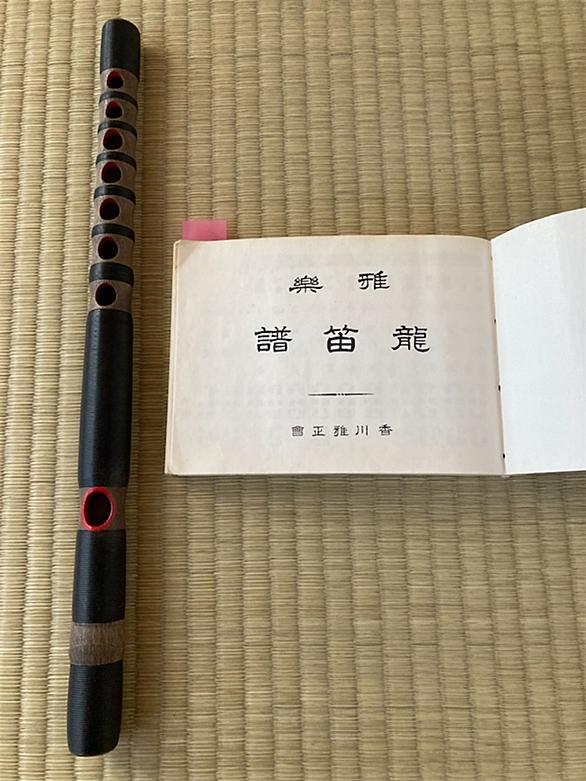 雅樂
龍笛譜
香川雅正會